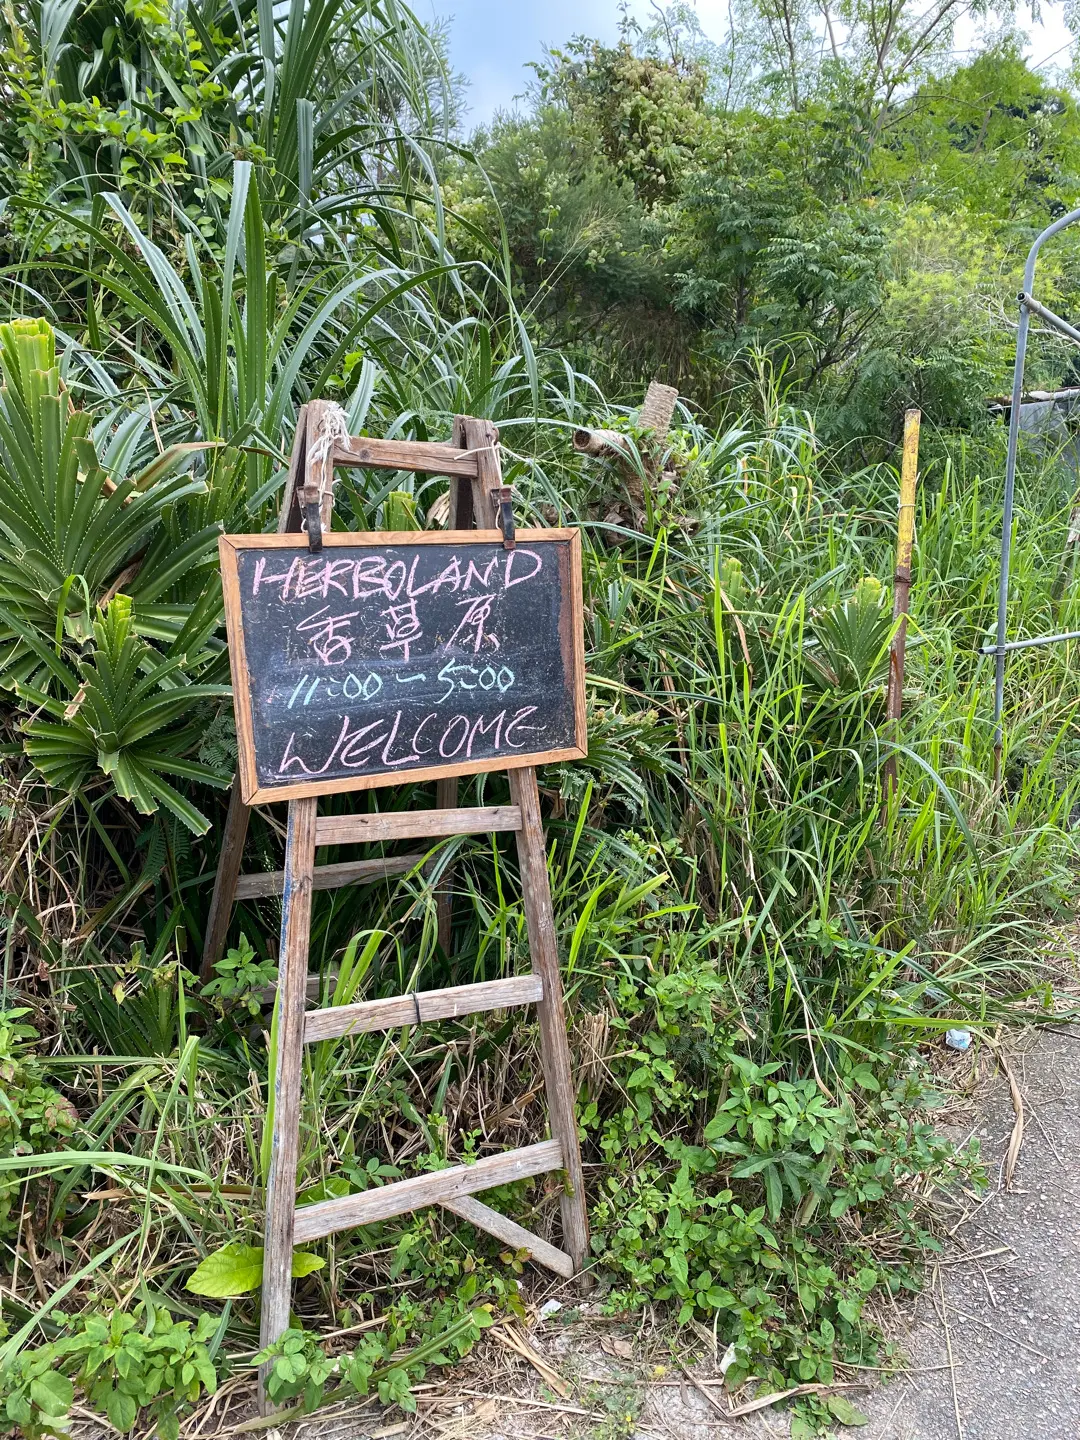 HERBOLAND
香草原
11:00 - 5:00
WELCOME